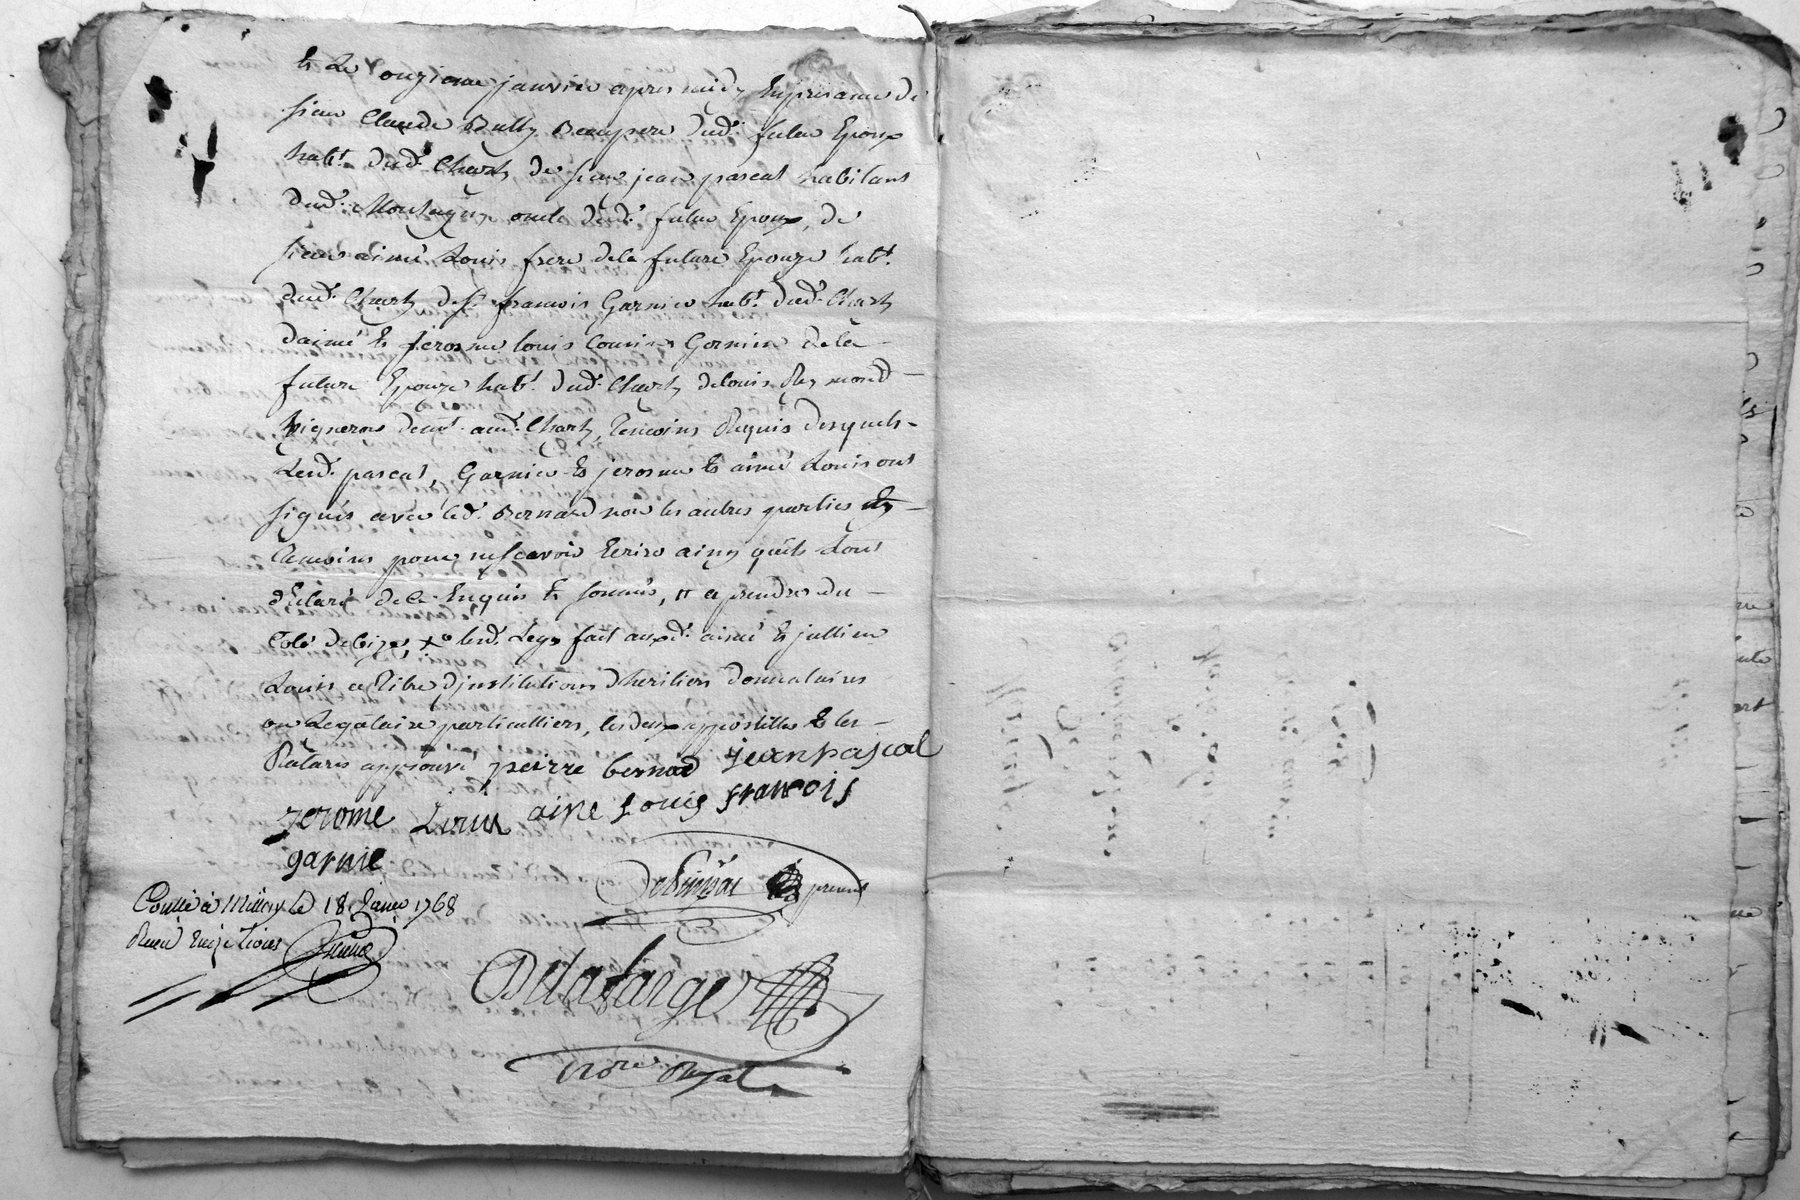 Et Le onzieme janvier apres midy En presance de
sieur Claude Bully Beaupere dud.t futur Epoux
habt. dud.t Charly de sieur jean pascal habitant
dud.t Montagny oncle dud.t futur Epoux, de
sieur aimé Louis frere dela future Epouze habt.
dud.t Charly de sr. francois Garnier habt. dud.t Charly
d'aimé Et Jerosme Louis Cousins Germins dela
future Epouze habt. dud.t Charly de louis Reymond
vigneron demt. aud.t Charly, temoins Requis desquels
Led.t pascal, Garnier Et jerosme Et aimé Louis ont
signés avec led.t Bernard non les autres parties Et
temoins pour ne scavoir Ecrire ainsy quils Lont
declaré de ce Enquis Et sommés, a prendre du
Coté led.t Legs fait auxd.t aimé Et jullien
Louis a titre d'institution d'heritiers donnataires
ou Legataire particulliers, les deux appostilles Et les
Ratures approuvé pierre bernard jean pascal
jerome Louis aime Louis francois
garnie
present
Conllé à Millery le 18 Janvier 1768
Receu treize Livres
Delafarge
no.re Royal